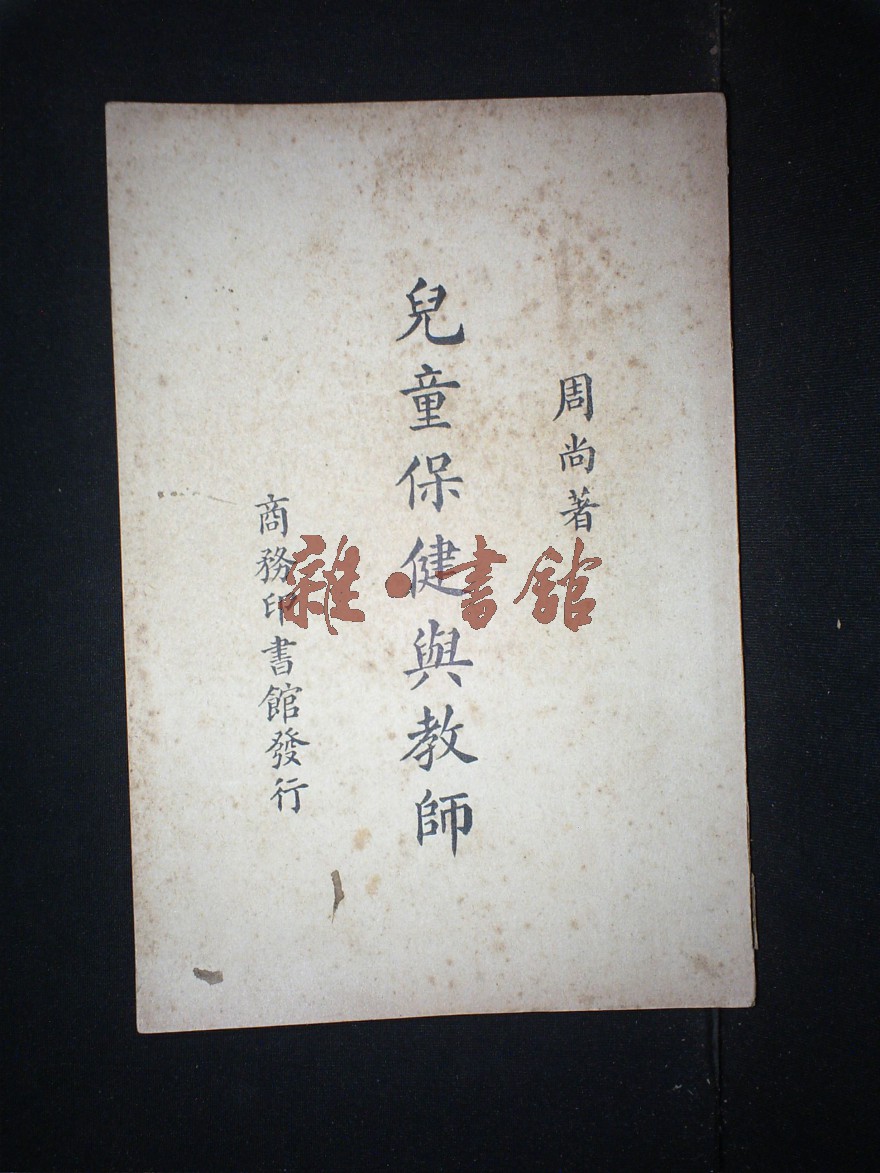 周尚著
兒童保健與教師
商務印書館發行
雜·書館